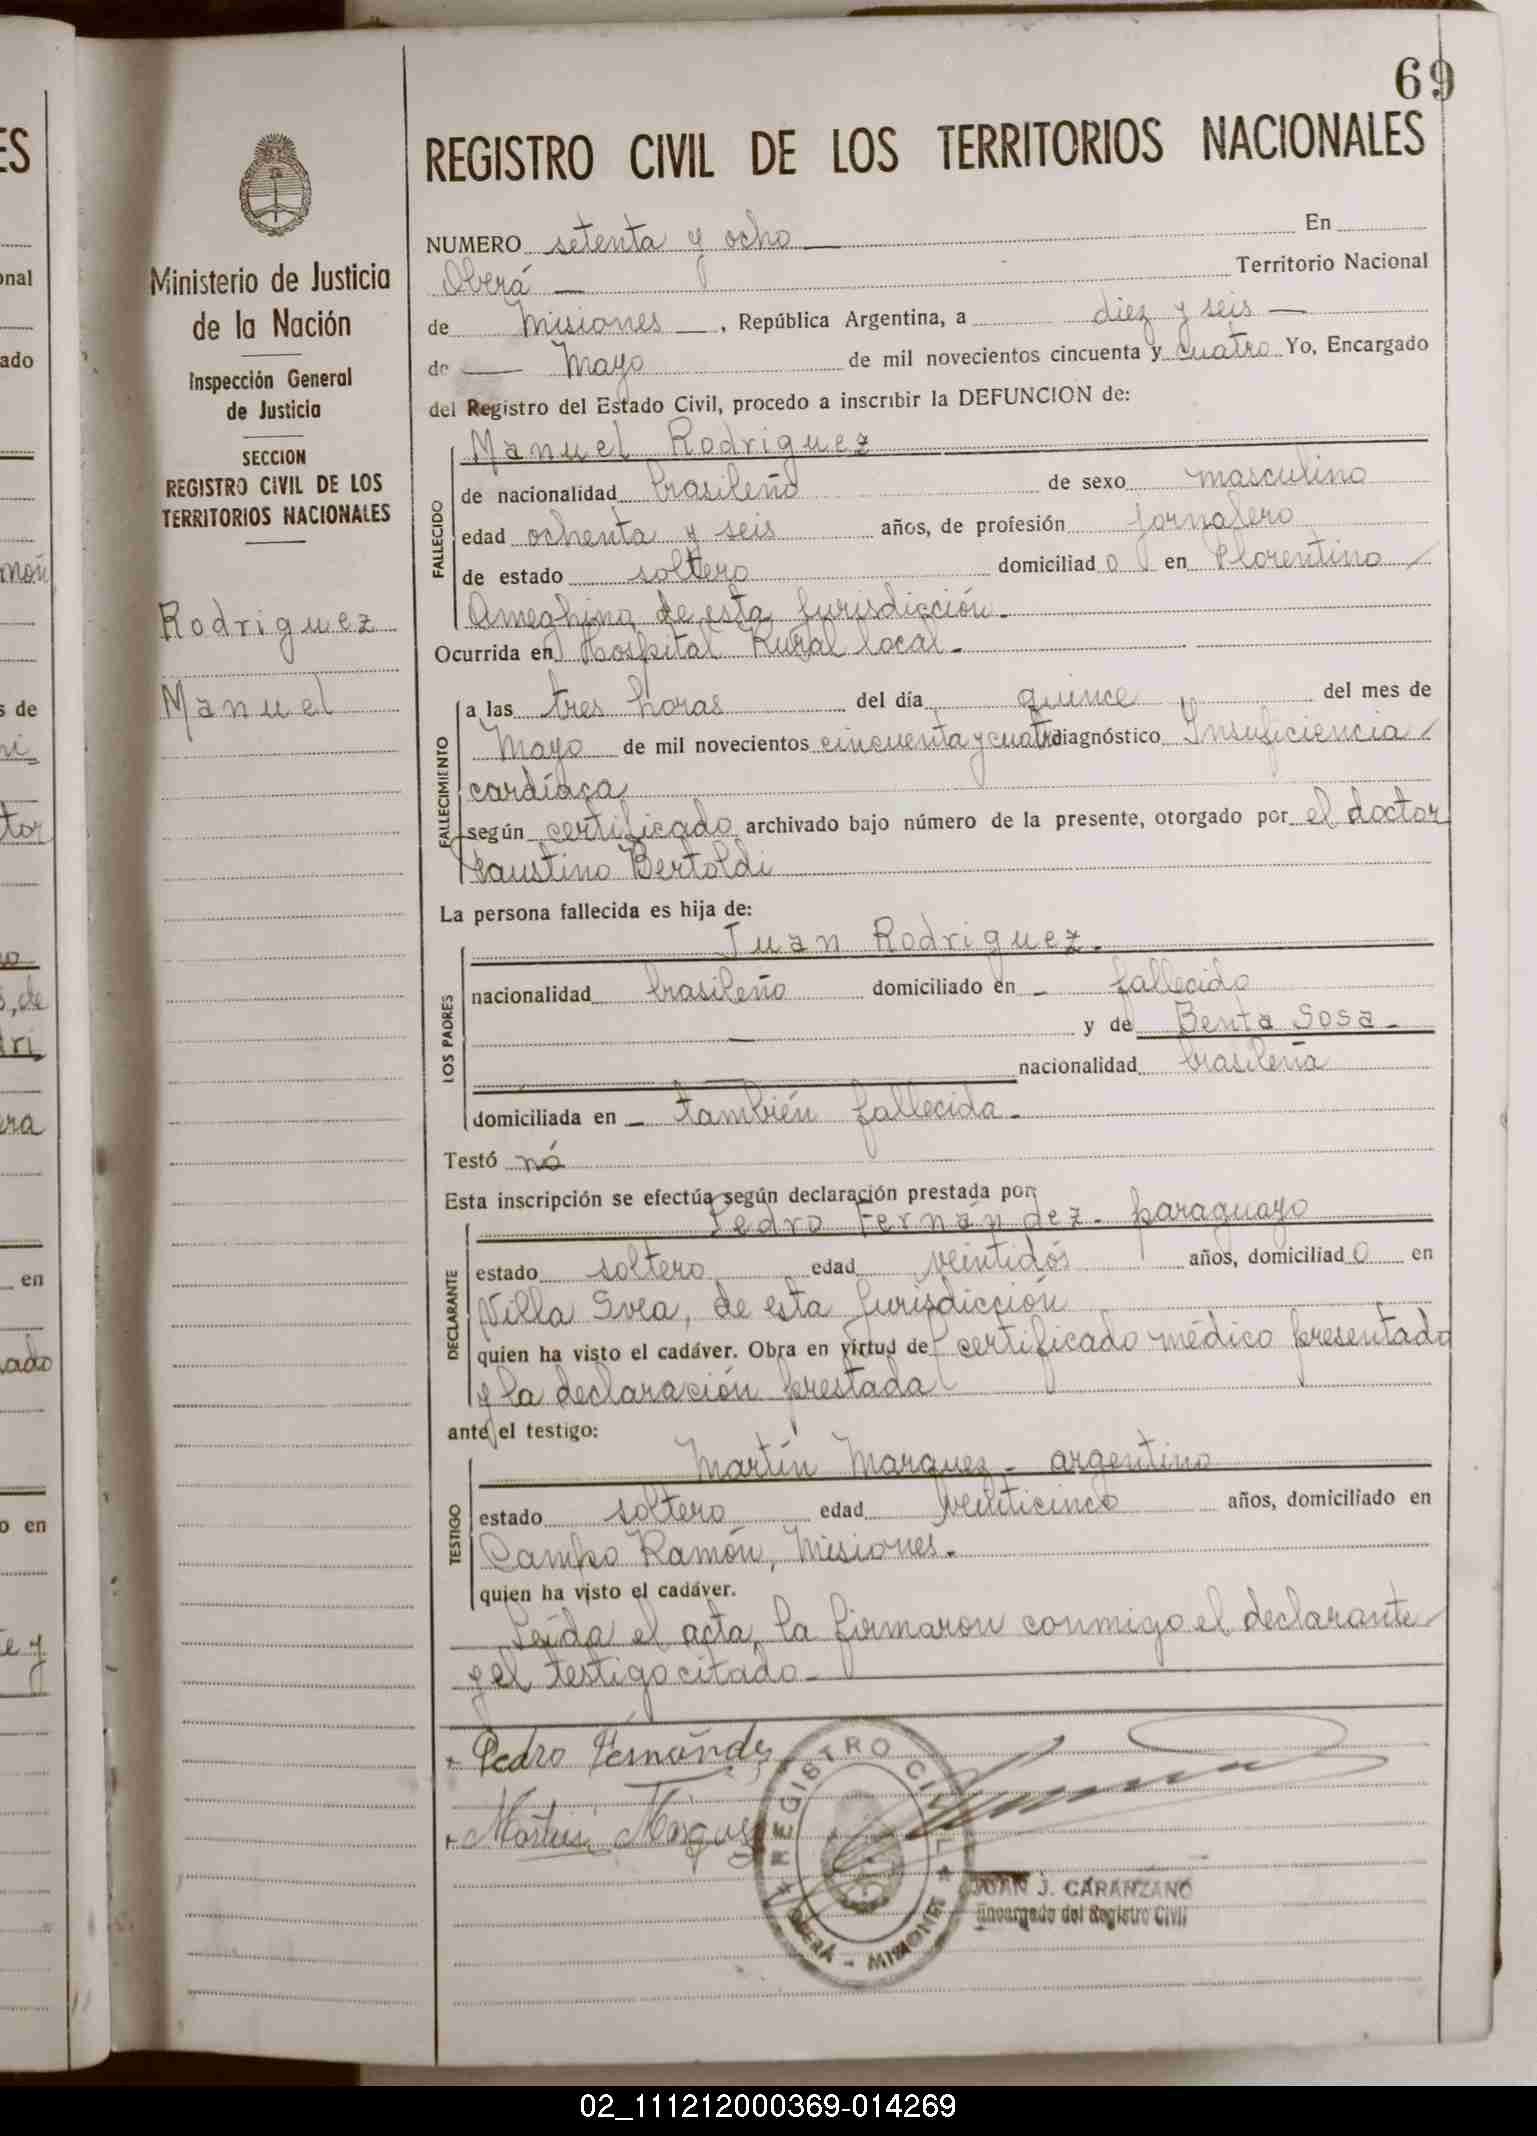 69
REGISTRO CIVIL DE LOS TERRITORIOS NACIONALES
Ministerio de Justicia
de la Nación
Inspección General
de Justicia
SECCION
REGISTRO CIVIL DE LOS
TERRITORIOS NACIONALES
Rodriguez
Manuel
NUMERO setenta y ocho — En
Oberá — Territorio Nacional
de Misiones —, República Argentina, a diez y seis —
de — Mayo de mil novecientos cincuenta y cuatro Yo, Encargado
del Registro del Estado Civil, procedo a inscribir la DEFUNCION de:
FALLECIDO
Manuel Rodriguez
de nacionalidad brasileño de sexo masculino
edad ochenta y seis años, de profesión jornalero
de estado soltero domiciliado en Florentino
Ameghino de esta Jurisdicción.
Ocurrida en Hospital Rural local.
FALLECIMIENTO
a las tres horas del día quince del mes de
Mayo de mil novecientos cincuenta y cuatro diagnóstico Insuficiencia
cardíaca
según certificado archivado bajo número de la presente, otorgado por el doctor
Faustino Bertoldi
La persona fallecida es hija de:
LOS PADRES
Juan Rodriguez.
nacionalidad brasileño domiciliado en - fallecido
— y de Benta Sosa -
nacionalidad brasileña
domiciliada en - también fallecida -
Testó nó
Esta inscripción se efectúa según declaración prestada por
DECLARANTE
Pedro Fernández - paraguayo
estado soltero edad veintidós años, domiciliado en
Villa Svea, de esta Jurisdicción
quien ha visto el cadáver. Obra en virtud de certificado médico presentado
y la declaración prestada
ante el testigo:
TESTIGO
Martín Marquez - argentino
estado soltero edad veinticinco años, domiciliado en
Campo Ramón, Misiones.
quien ha visto el cadáver.
Leída el acta, la firmaron conmigo el declarante
y el testigo citado -
Pedro Fernández
Martin Marquez
REGISTRO CIVIL
OBERÁ - MISIONES
JUAN J. CARANZANO
Encargado del Registro Civil
02_111212000369-014269